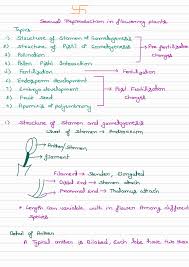 Sexual Reproduction in flowering plants
Topics
1) Structure of Stamen & Gametogenesis
2) Structure of Pistil & Gametogenesis
3) Pollination
4) Pollen Pistil Interaction
Pre Fertilization Changes
5) Fertilization → Fertilization
6) Endosperm development
7) Embryo development
8) Fruit Seed
9) Apomixis & polyembryony
Post Fertilization Changes
1) Structure of Stamen and gametogenesis
of Stamen = Androecium
Anther/Stamen
filament
Filament → Slender, Elongated
Distal end → Stamen attach
Proximal end → Thalamus attach
* Length can variable with in flower Among different Species
Detail of Anther
A Typical anther is Bilobed, Each lobe have two